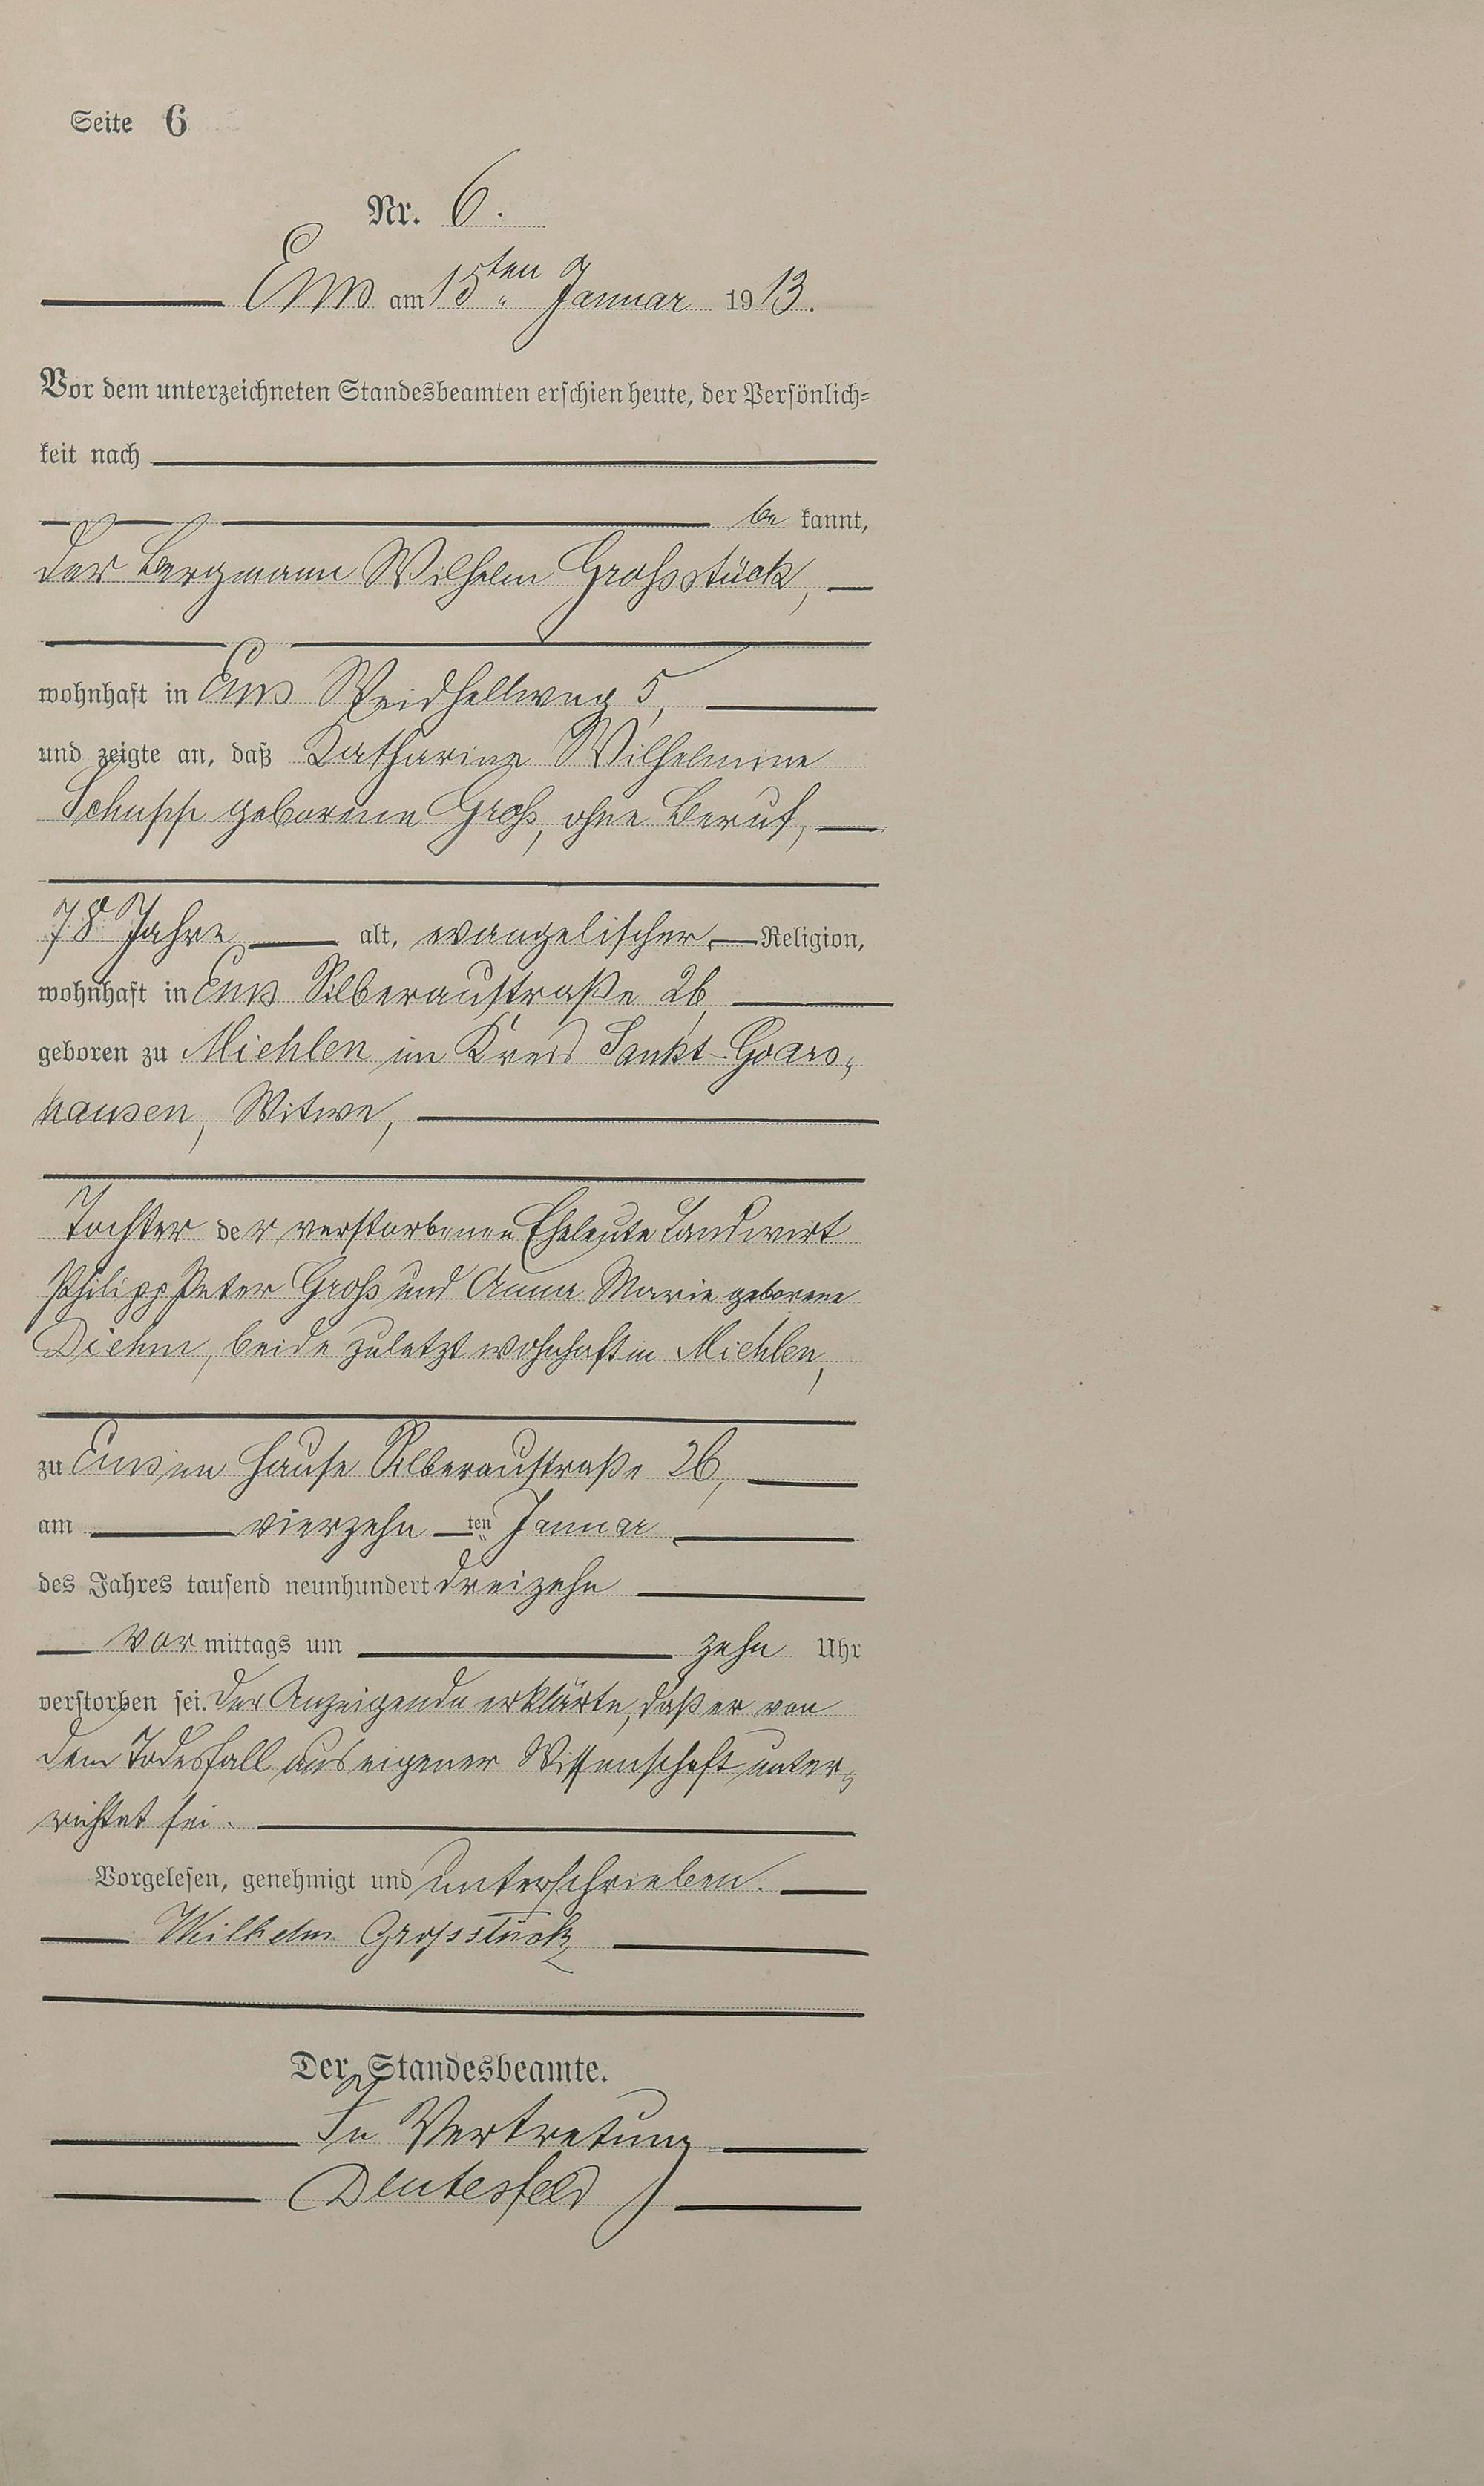 Seite 6
Nr. 6.
Ems am 15ten Januar 1913.
Vor dem unterzeichneten Standesbeamten erschien heute, der Persönlich-
keit nach
be kannt,
der Bergmann Wilhelm Großstück,
wohnhaft in Ems Weidhellweg 5,
und zeigte an, daß Katharine Wilhelmine
Schupp geborene Groß, ohne Beruf,
78 Jahre alt, evangelischer Religion,
wohnhaft in Ems Silberaustraße 26,
geboren zu Miehlen im Kreis Sankt-Goars-
hausen, Witwe,
Tochter der verstorbenen Eheleute Landwirt
Philipp Peter Groß und Anna Marie geborene
Diehm, beide zuletzt wohnhaft in Miehlen,
zu Ems im Hause Silberaustraße 26,
am vierzehn ten Januar
des Jahres tausend neunhundert dreizehn
Vor mittags um zehn Uhr
verstorben sei. Der Anzeigende erklärte, daß er von
dem Todesfall aus eigener Wissenschaft unter-
richtet sei.
Vorgelesen, genehmigt und unterschrieben.
Wilhelm Grossstück
Der Standesbeamte.
In Vertretung